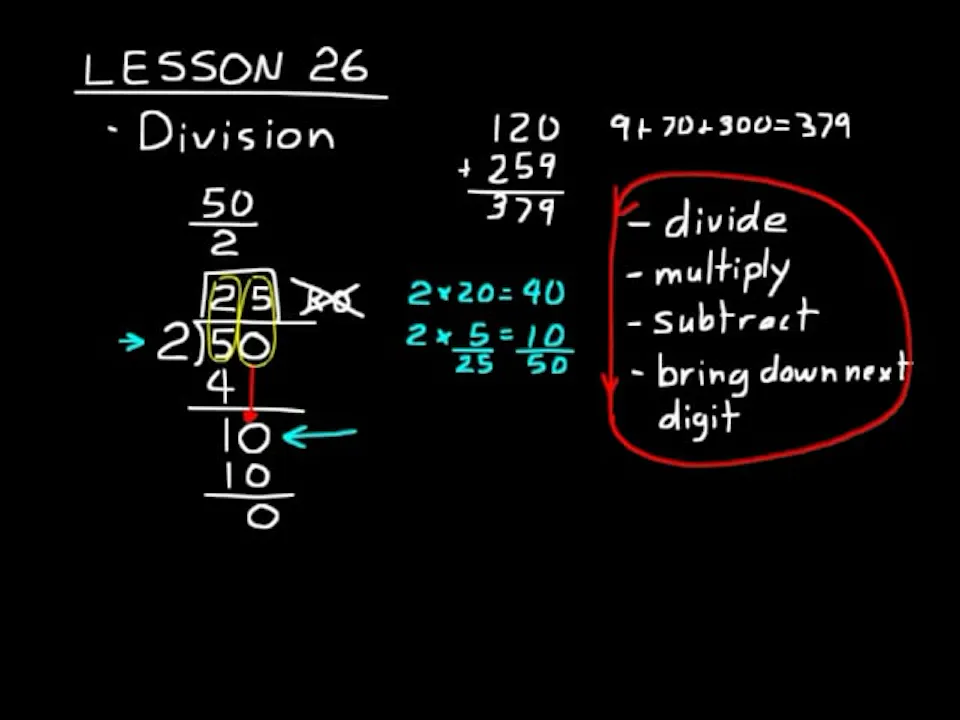 LESSON 26
· Division
50
2
25
2)50
4
10
10
0
120
+ 259
379
9+70+300=379
2×20=40
2×5=10
25 50
- divide
- multiply
- subtract
- bring down next
digit